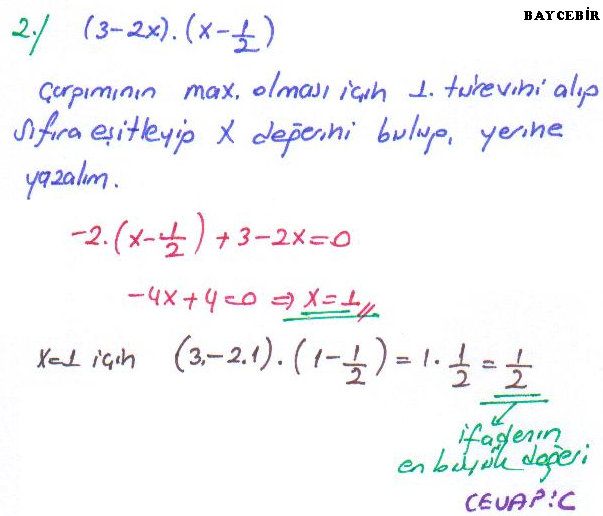 BAYCEBİR
2./ (3-2x).(x-1/2)
Çarpımının max. olması için 1. türevini alıp
sıfıra eşitleyip X değerini bulup, yerine
yazalım.
-2.(x-1/2)+3-2x=0
-4x+4=0 ⇒ x=1//
x=1 için (3-2.1).(1-1/2)=1.1/2=1/2
ifadenin
en büyük değeri
CEVAP:C